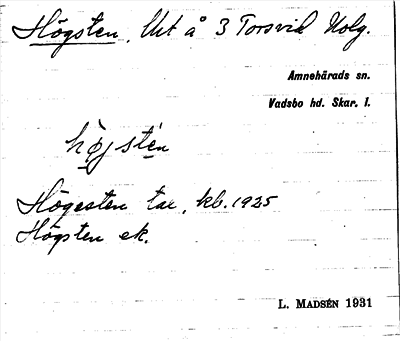 Högsten, Urt å 3 Torsvid Nolg.
Amnehärads sn.
Vadsbo hd. Skar. l.
højstén
Högesten tax, kb. 1925
Högsten ek.
L. MADSÉN 1931